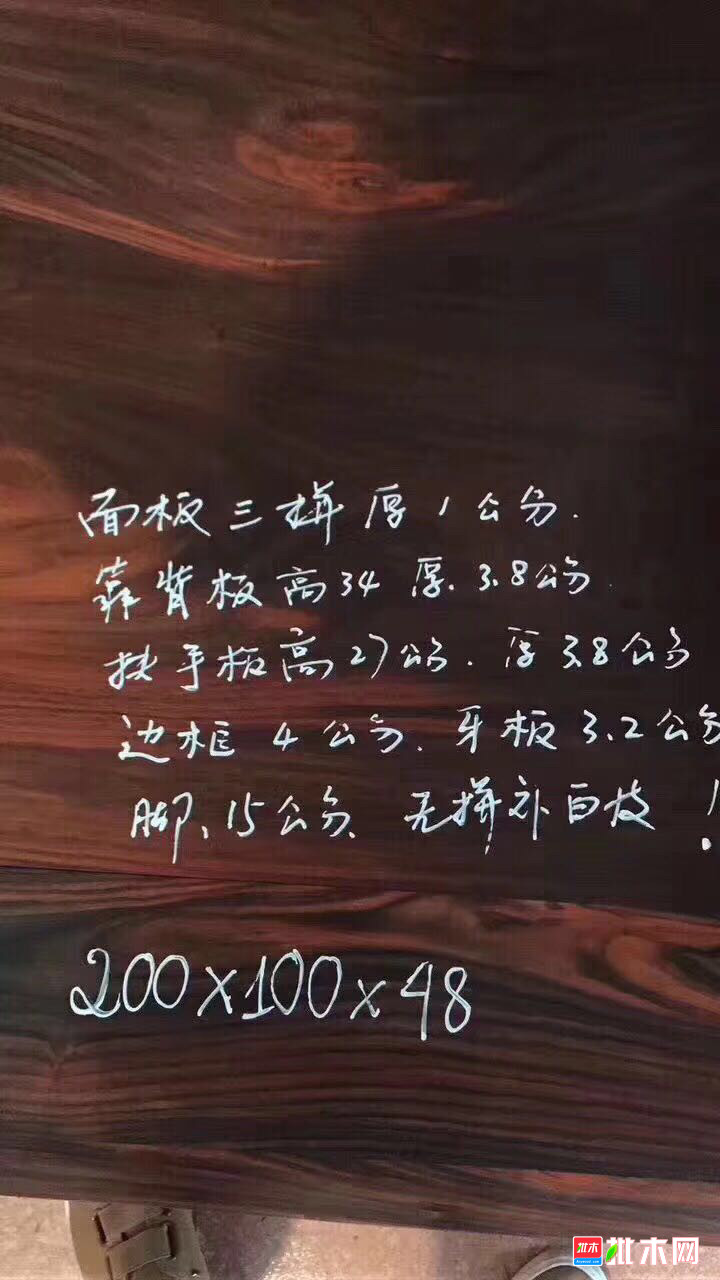 面板三拼厚1公分.
靠背板高34 厚.3.8公分
扶手板高27公分.厚3.8公分
边框4公分.牙板3.2公分
脚、15公分、无拼补白皮!
200×100×48
批木
批木网